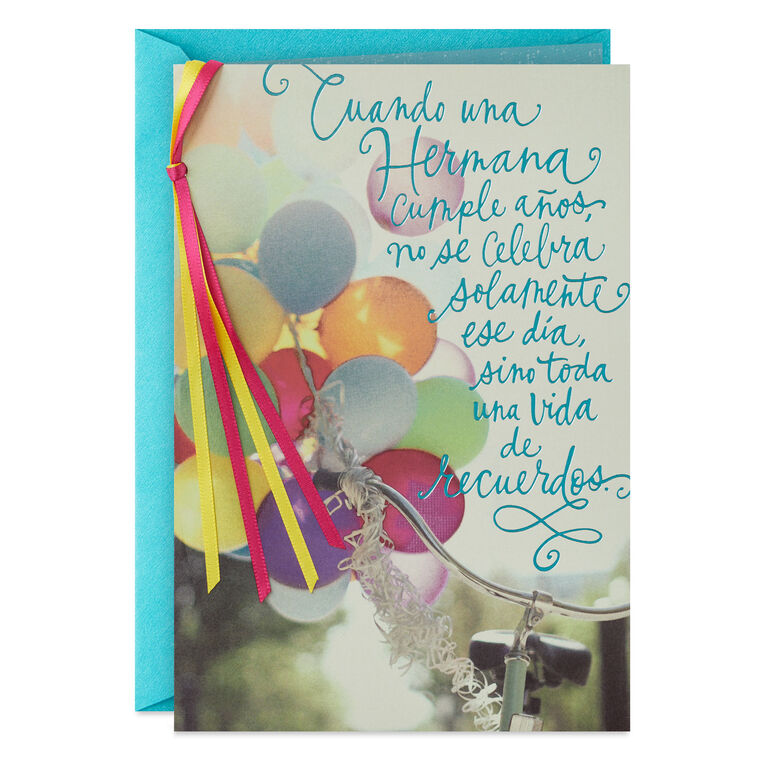 Cuando una
Hermana
cumple años,
no se celebra
solamente
ese día,
sino toda
una vida
de
recuerdos.